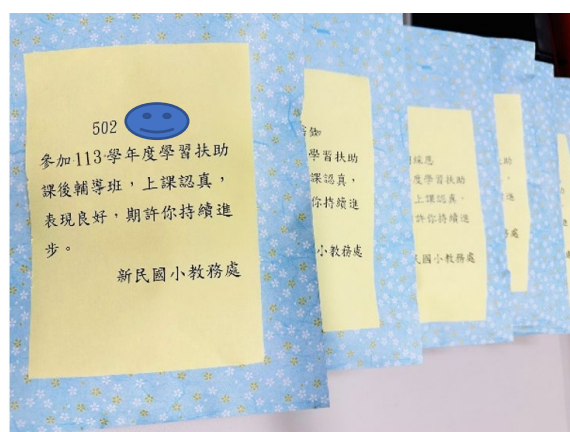 502
參加113學年度學習扶助
課後輔導班，上課認真，
表現良好，期許你持續進
步。
新民國小教務處
學習扶助
課認真，
你持續進
小教務處
度學習扶助
上課認真，
許你持續進
民國小教務處